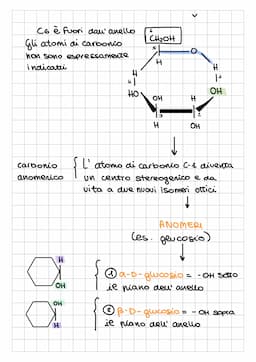 C6 è fuori dall'anello
Gli atomi di carbonio
non sono espressamente
indicati
6
CH2OH
5
O
H
H
H
4
1
HO
OH
H
OH
3
2
H
OH
carbonio
anomerico
L'atomo di carbonio C-1 diventa
un centro stereogenico e da
vita a due nuovi isomeri ottici
ANOMERI
(es. glucosio)
H
OH
① α-D-glucosio = -OH sotto
il piano dell'anello
OH
H
② β-D-glucosio = -OH sopra
il piano dell'anello